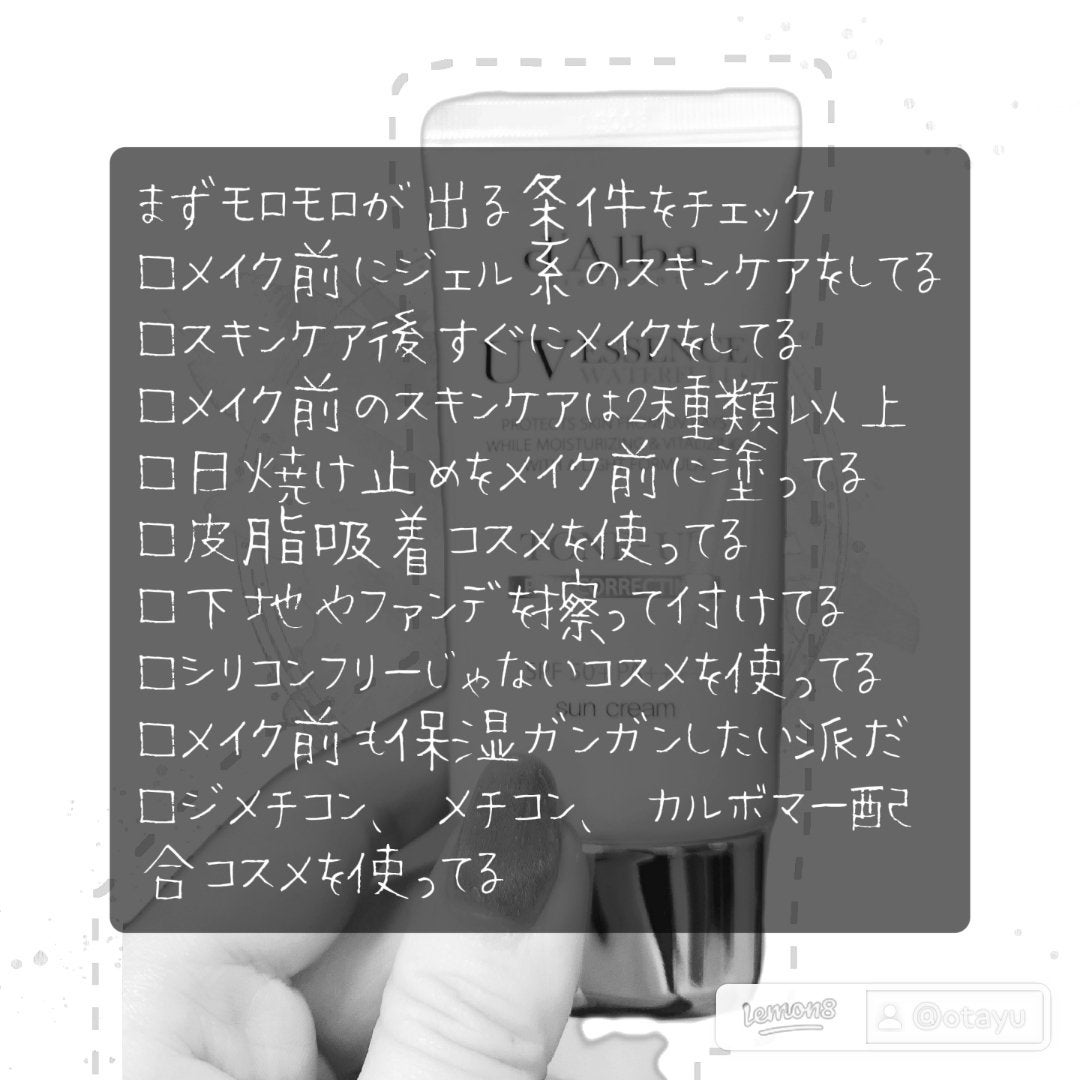 まずモロモロが出る条件をチェック
□メイク前にジェル系のスキンケアをしてる
□スキンケア後すぐにメイクをしてる
□メイク前のスキンケアは2種類以上
□日焼け止めをメイク前に塗ってる
□皮脂吸着コスメを使ってる
□下地やファンデを擦って付けてる
□シリコンフリーじゃないコスメを使ってる
□メイク前も保湿ガンガンしたい派だ
□ジメチコン、メチコン、カルボマー配
合コスメを使ってる
d'Alba
UV ESSENCE
WATERFULL
PROTECTS SKIN FROM UV RAYS
WHILE MOISTURIZING & VITALIZING
sun cream
lemon8 @otayu